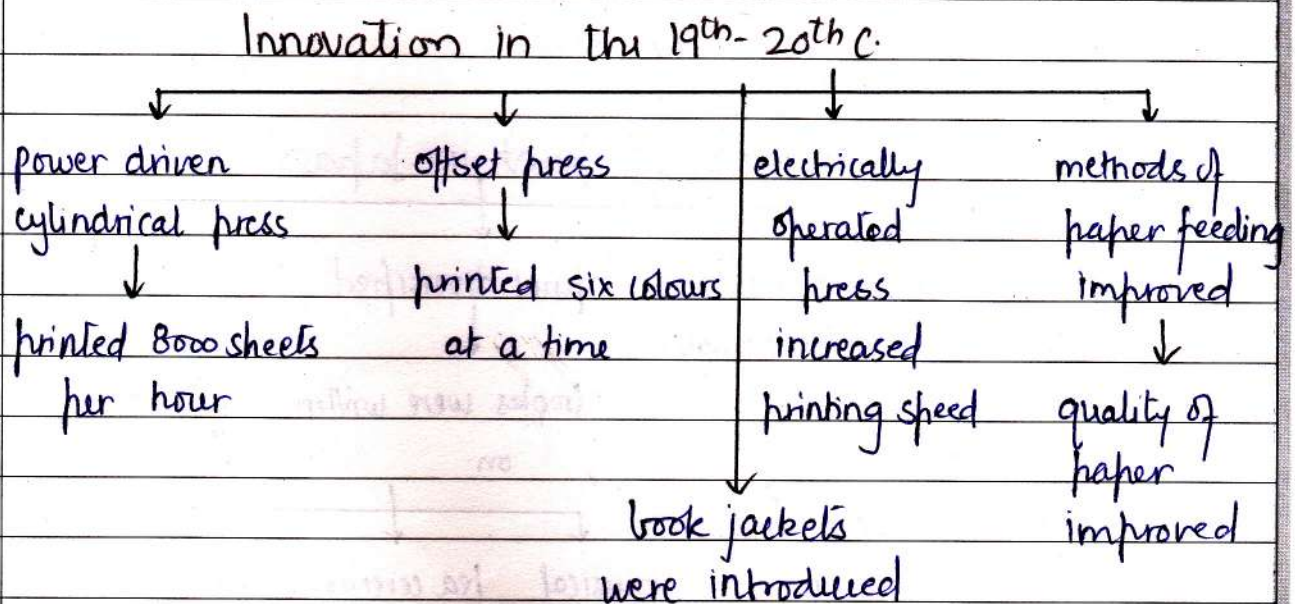 Innovation in the 19th- 20th C.
power driven
cylindrical press
printed 8000 sheets
per hour
offset press
printed six colours
at a time
electrically
operated
press
increased
printing speed
methods of
paper feeding
improved
quality of
paper
improved
book jackets
were introduced